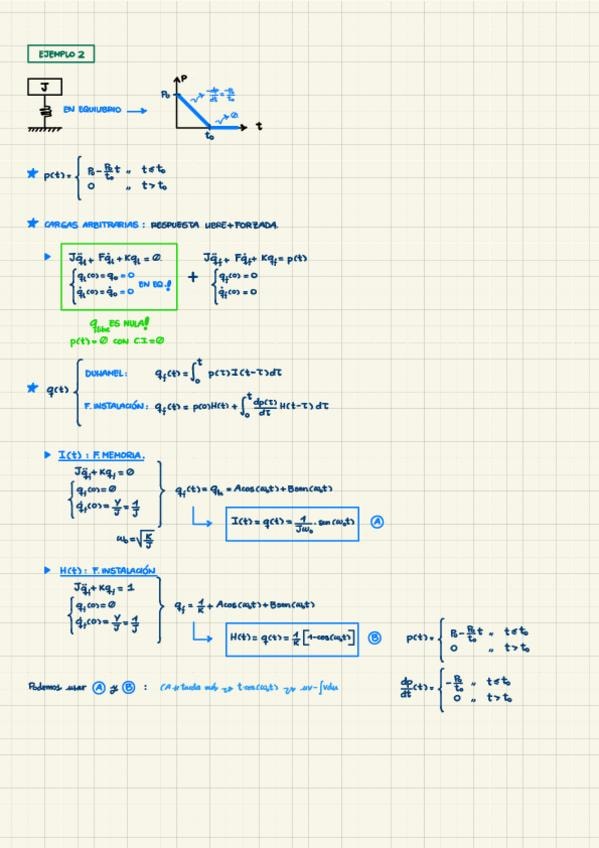 EJEMPLO 2
J
EN EQUILIBRIO →
P
P₀
dp/dt = -P₀/t₀
0
t₀
t
★ p(t) = { P₀ - P₀/t₀ t ,, t ≤ t₀
0 ,, t > t₀
★ CARGAS ARBITRARIAS : RESPUESTA LIBRE + FORZADA.
▶ Jq̈ₗ + Fq̇ₗ + Kqₗ = 0
{ qₗ(0) = q₀ = 0
q̇ₗ(0) = q̇₀ = 0
EN EQ.!
+
Jq̈f + Fq̇f + Kqf = p(t)
{ qf(0) = 0
q̇f(0) = 0
q libre ES NULA!
p(t) = 0 CON C.I = 0
★ q(t) {
DUHAMEL: qf(t) = ∫₀ᵗ p(τ) I(t-τ) dτ
F. INSTALACIÓN: qf(t) = p(0)H(t) + ∫₀ᵗ dp(τ)/dτ H(t-τ) dτ
▶ I(t) : F. MEMORIA.
Jq̈f + Kqf = 0
{ qf(0) = 0
q̇f(0) = Y/J = 1/J
qf(t) = qh = A cos(ω₀t) + B sen(ω₀t)
I(t) = q(t) = 1/Jω₀ · sen(ω₀t) Ⓐ
ω₀ = √K/J
▶ H(t) : F. INSTALACIÓN
Jq̈f + Kqf = 1
{ qf(0) = 0
q̇f(0) = Y/J = 1/J
qf = 1/K + A cos(ω₀t) + B sen(ω₀t)
H(t) = q(t) = 1/K [1 - cos(ω₀t)] Ⓑ
p(t) = { P₀ - P₀/t₀ t ,, t ≤ t₀
0 ,, t > t₀
Podemos usar Ⓐ y Ⓑ : (A → tarda más → t·cos(ω₀t) → uv - ∫vdu
dp/dt (t) = { -P₀/t₀ ,, t ≤ t₀
0 ,, t > t₀